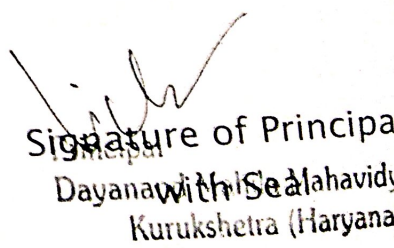 Signature of Principa
Principal
with Seal
Dayanand Mahila Mahavidy
Kurukshetra (Haryana